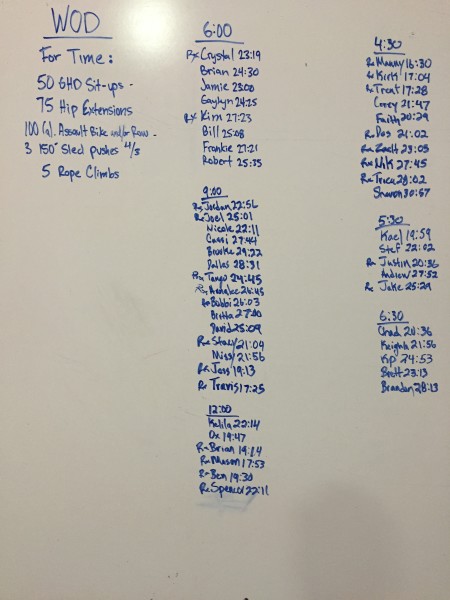 WOD
For Time:
50 GHD Sit-ups -
75 Hip Extensions
100 Cal. Assault Bike and/or Row -
3 150' Sled pushes 4/5
5 Rope Climbs
6:00
Rx Crystal 23:19
Brian 24:30
Jamie 23:00
Gaylyn 24:25
Rx Kim 27:23
Bill 25:08
Frankie 27:21
Robert 25:35
9:00
Rx Jordan 22:56
Rx Joel 25:01
Nicole 22:11
Cassi 27:44
Brooke 29:22
Dallas 28:31
Rx Tango 24:45
Rx Annalee 26:45
Rx Bobbi 26:03
Britta 27:00
David 25:09
Rx Stacy 21:04
Missy 21:56
Rx Joss 19:13
Rx Travis 17:25
12:00
Kalila 22:14
Ox 19:47
Rx Brian 19:14
Rx Mason 17:53
Rx Ben 19:30
Rx Spencer 22:11
4:30
Rx Manny 16:30
Rx Kirk 17:04
Rx Trent 17:28
Corey 21:47
Faith 20:29
Rx Dos 21:02
Rx Zach 23:03
Rx Nik 27:45
Rx Trica 28:02
Sharon 30:57
5:30
Kael 19:59
Stef 22:02
Rx Justin 20:36
Andrew 27:52
Rx Jake 25:29
6:30
Chad 20:36
Keigan 21:56
KP 24:53
Brett 23:13
Brandon 28:13